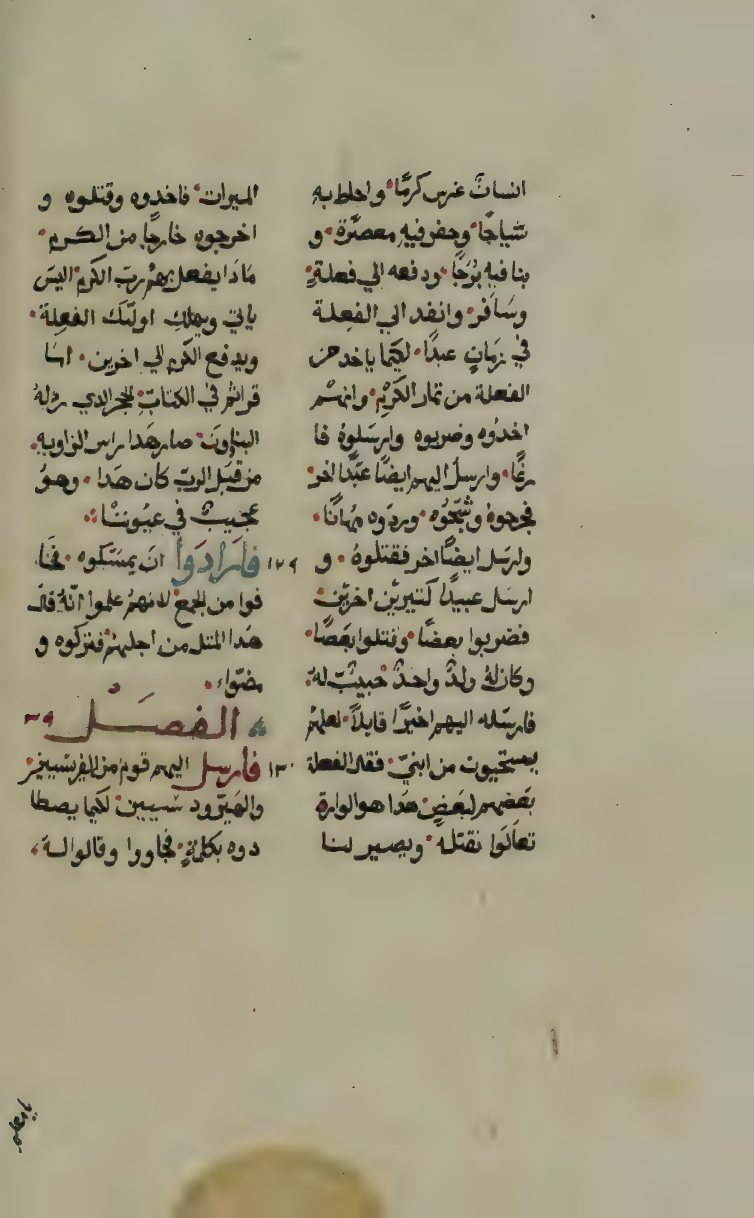 انسانٌ غرس كرمًا واحاط به
سياجًا وحفر فيه معصرة و
بنا فيه بُرجًا ودفعه الي فعلةٍ
وسافر وانفد الي الفعلة
في زمانٍ عبدًا لكيما ياخد من
الفعلة من تمار الكرم وانهم
اخدوه وضربوه وارسلوه فا
رغًا وارسل اليهم ايضًا عبدًا اخر
فجرحوه وشجّوه وردّوه مهانًا
وارسل ايضًا اخر فقتلوه و
ارسل عبيدًا كتيرين اخرين
فضربوا بعضًا وقتلوا بعضًا
وكان لهُ ولدٌ واحدٌ حبيبٌ لهُ
فارسله اليهم اخيرًا قايلاً لعلهم
يستحيون من ابني فقال الفعلة
بعضهم لبعض هدا هو الوارت
تعالوا نقتله ويصير لنا
الميرات فاخدوه وقتلوه و
اخرجوه خارجًا من الكرم
مادا يفعل بهم ربّ الكرم اليس
ياتي ويهلك اولئك الفعلة
ويدفع الكرم الي اخرين اما
قراتم في الكتاب الحجر الدي رذلهُ
البناوون صار هدا راس الزاوية
من قبل الربّ كان هدا وهو
عجيبٌ في عيوننا
١٢٩ فارادوا ان يمسكوه فخا
فوا من الجمع لانهم علموا انّهُ قال
هدا المتل من اجلهم فتركوه و
مضوا
الفصل ٣٩
١٣٠ فارسل اليهم قوم من الفريسيين
والهيرودسيين لكيما يصطا
دوه بكلمةٍ فجاووا وقالوا لهُ